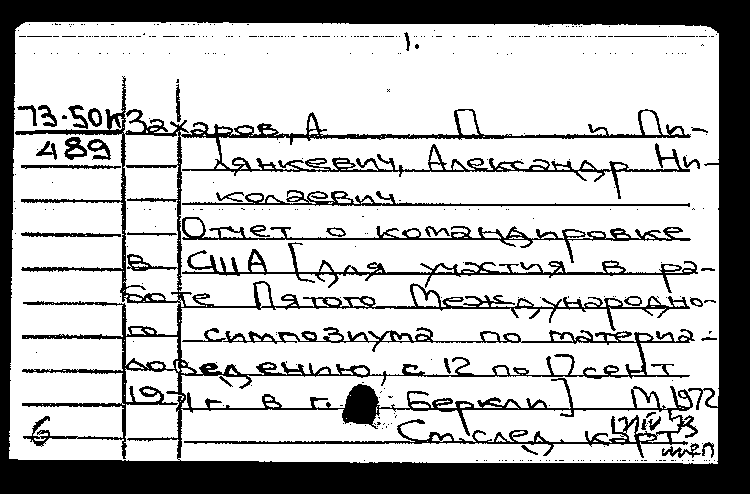 1.
73-50к Захаров, А П и Пи-
489 лянкевич, Александр Ни-
колаевич
Отчет о командировке
в США [Для участия в ра-
боте Пятого Международно-
го симпозиума по материа-
ловедению, с 12 по 17 сент
1971 г. в г. Беркли] М. 1972
6 См. след. карт.